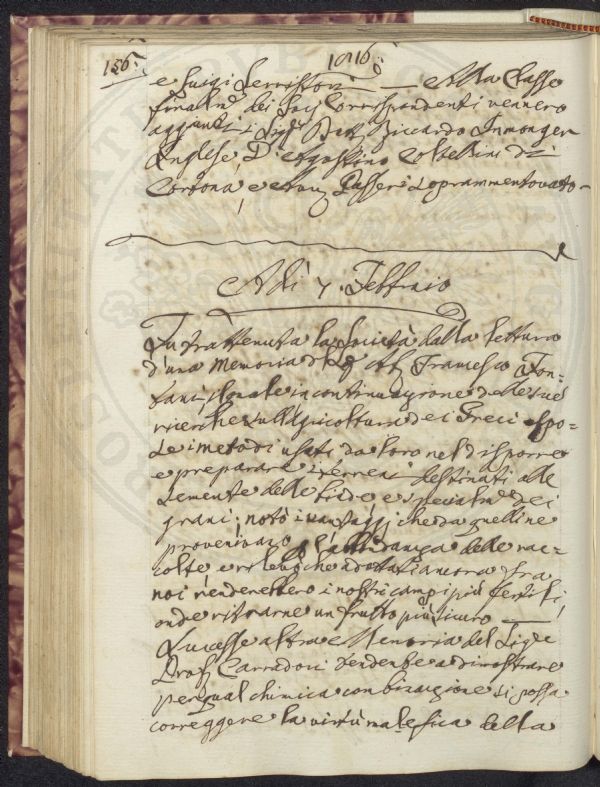 156.
1016.
e Luigi Serristori — Alla Classe
finalm.e dei Soci Corrispondenti vennero
aggiunti i Sig.ri Dott. Riccardo
Inglese D. Agostino Coltellini di
Cortona, e Passeri soprammentovato.
Adì 7. Febbraio
Fu trattenuta la Società dalla lettura
d'una Memoria del Francesco Fon-
tani, il quale in continuazione delle sue
ricerche sull'Agricoltura dei Greci espo-
se i metodi usati da loro nel disporre
e preparare i terreni destinati alle
semente delle biade e specialm.e dei
grani; notò i vantaggi che da quelli ne
provenivano l'abbondanza delle rac-
colte, e rilevò che adottati ancora fra
noi renderebbero i nostri campi più fertili,
onde ritrarne un frutto più sicuro —
Successe altra Memoria del Sig.e
Prof. Carradori tendente a dimostrare
per qual chimica combinazione si possa
correggere la virtù malefica della